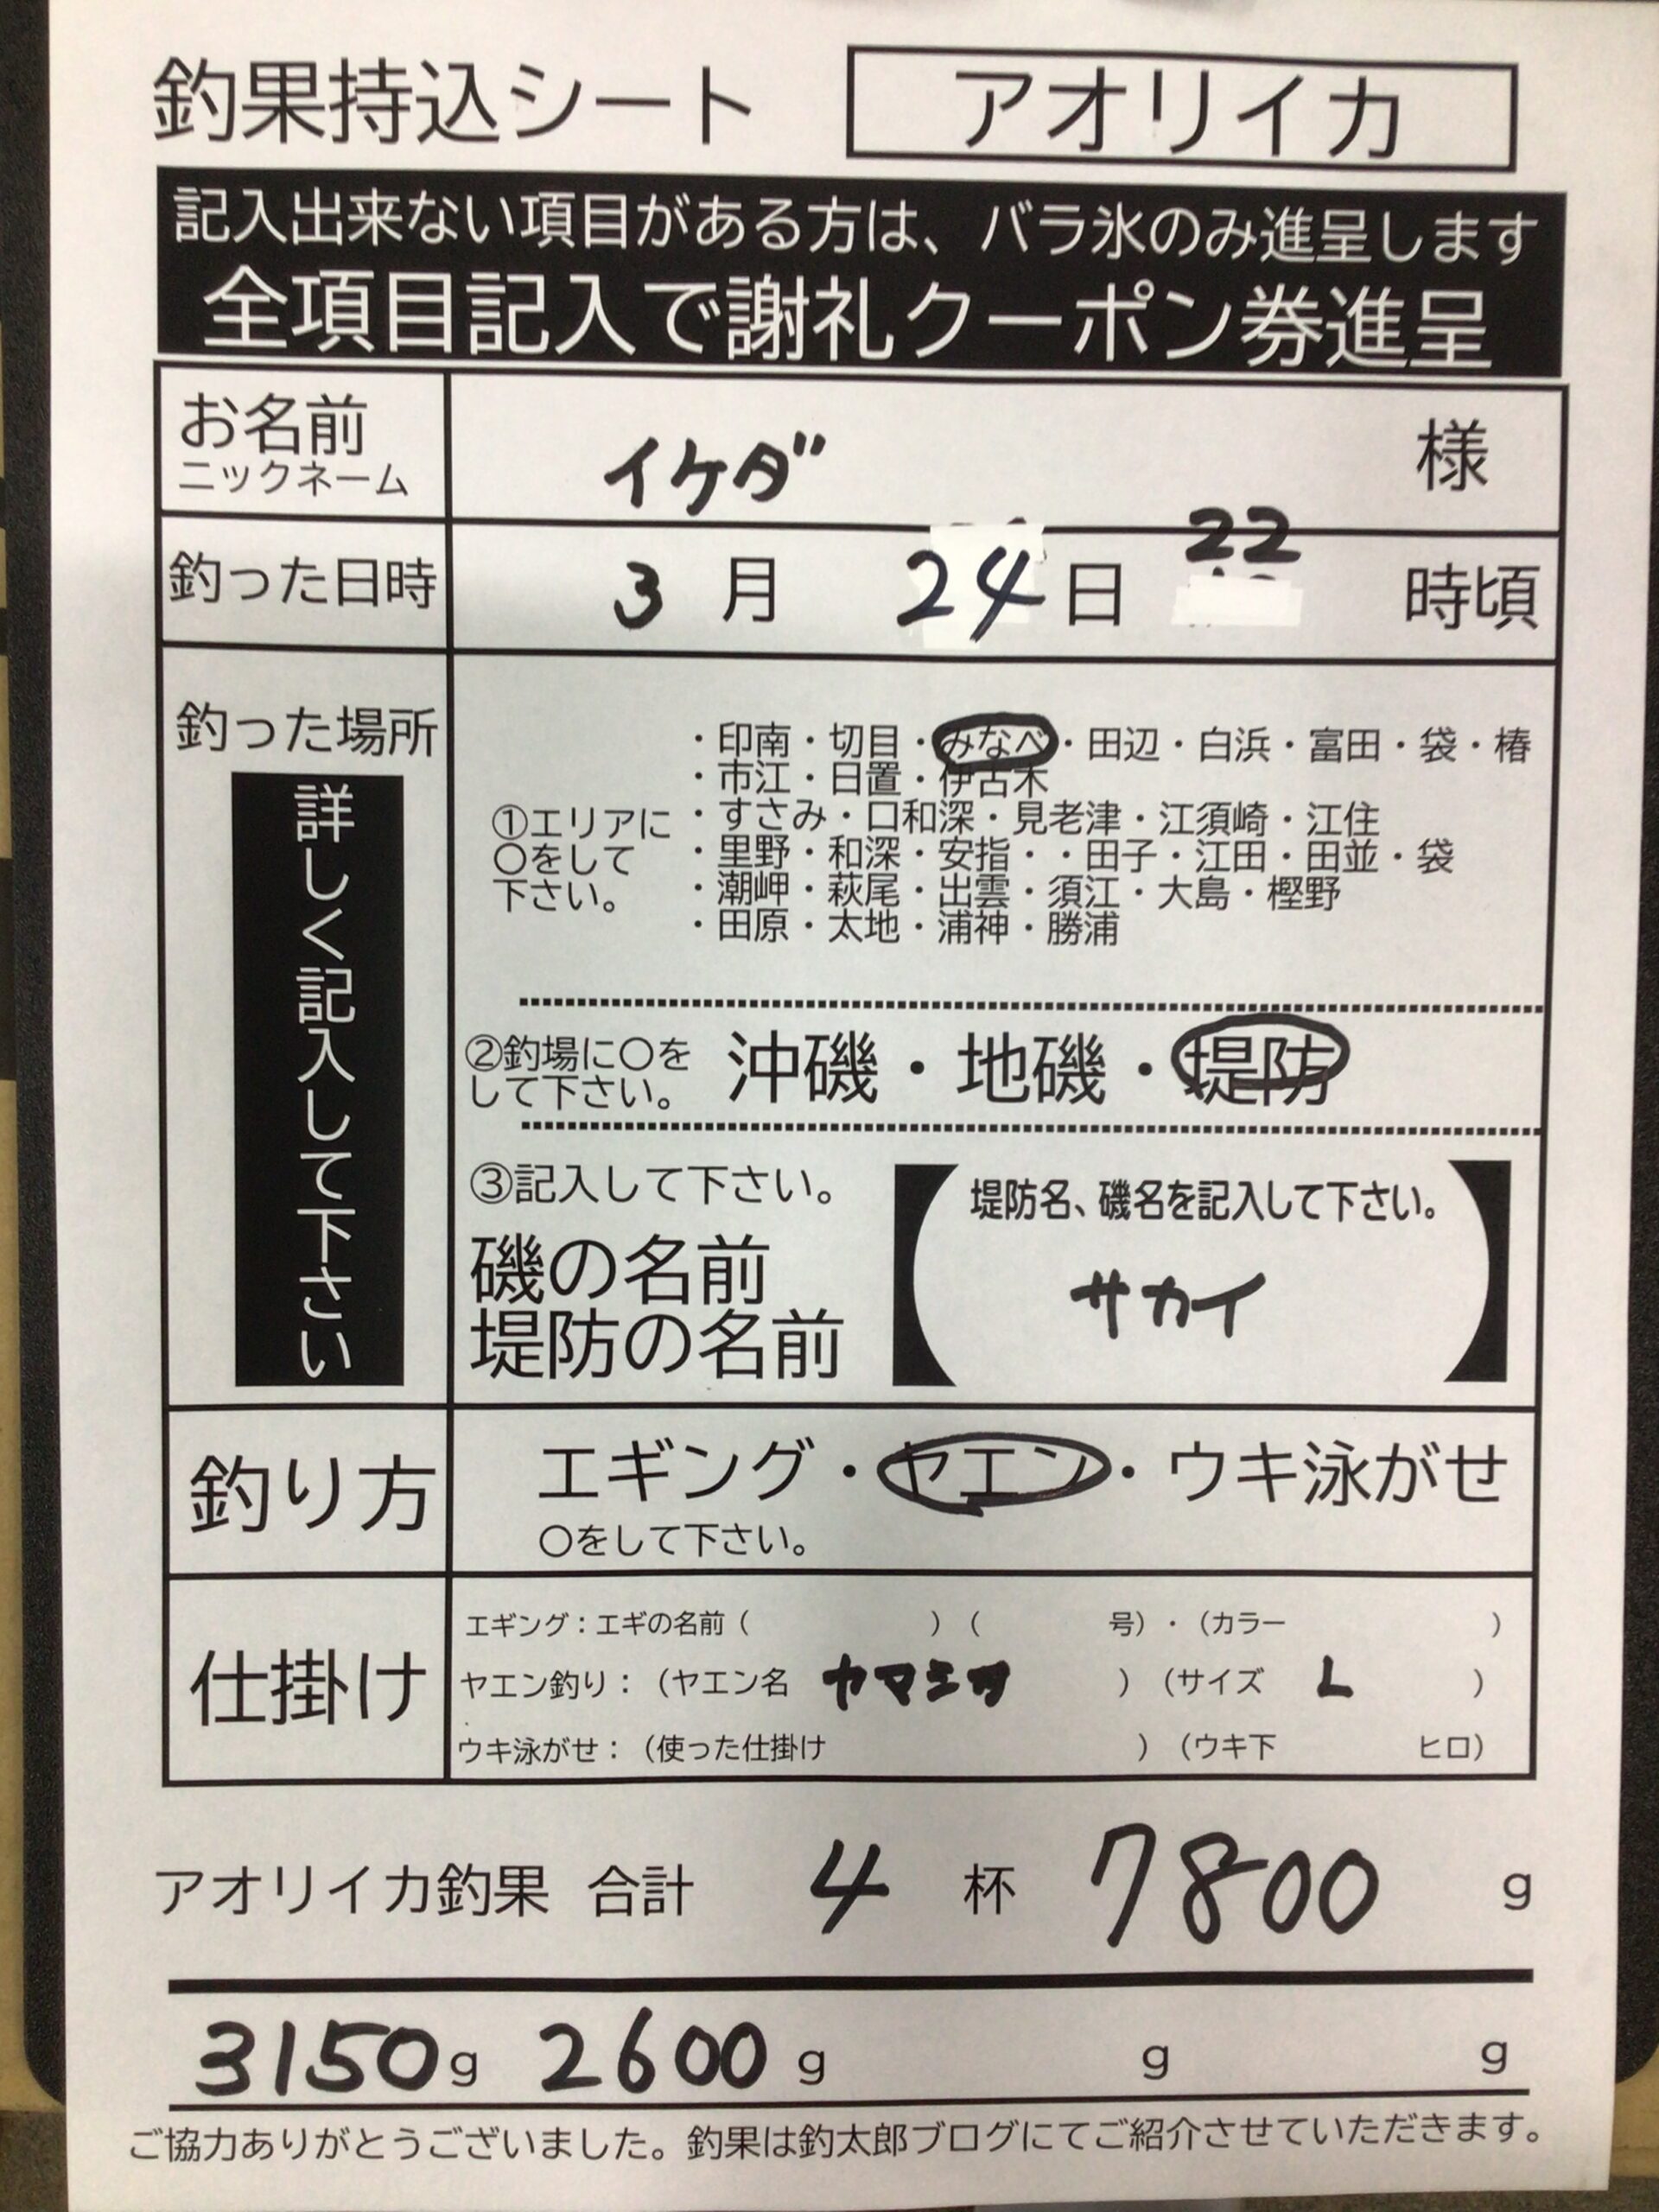 釣果持込シート アオリイカ
記入出来ない項目がある方は、バラ氷のみ進呈します
全項目記入で謝礼クーポン券進呈
お名前
ニックネーム
イケダ 様
釣った日時 3 月 24 日 22 時頃
釣った場所
詳しく記入して下さい
①エリアに
〇をして
下さい。
・印南・切目・みなべ・田辺・白浜・富田・袋・椿
・市江・日置・伊古木
・すさみ・口和深・見老津・江須崎・江住
・里野・和深・安指・・田子・江田・田並・袋
・潮岬・萩尾・出雲・須江・大島・樫野
・田原・太地・浦神・勝浦
②釣場に〇を
して下さい。
沖磯・地磯・堤防
③記入して下さい。
磯の名前
堤防の名前
堤防名、磯名を記入して下さい。
サカイ
釣り方 エギング・ヤエン・ウキ泳がせ
〇をして下さい。
仕掛け
エギング：エギの名前（ ）（ 号）・（カラー ）
ヤエン釣り：（ヤエン名 ヤマシタ ）（サイズ L ）
ウキ泳がせ：（使った仕掛け ）（ウキ下 ヒロ）
アオリイカ釣果 合計 4 杯 7800 g
3150g 2600g g g
ご協力ありがとうございました。釣果は釣太郎ブログにてご紹介させていただきます。